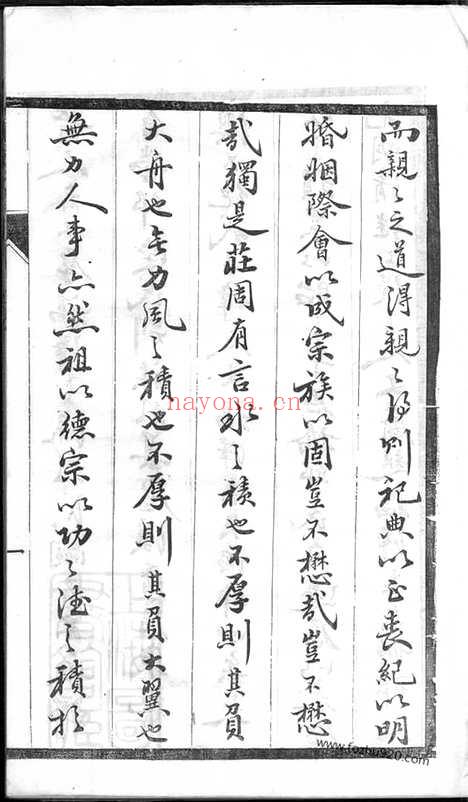 而親〻之道得親〻得則祀典以正喪紀以明
婚姻際會以成宗族以固豈不懋哉豈不懋
哉獨是莊周有言水之積也不厚則其負
大舟也無力風之積也不厚則其負大翼也
無力人事亦然祖以德宗以功〻德之積於
一
nayona.cn
www.fozhu920.com